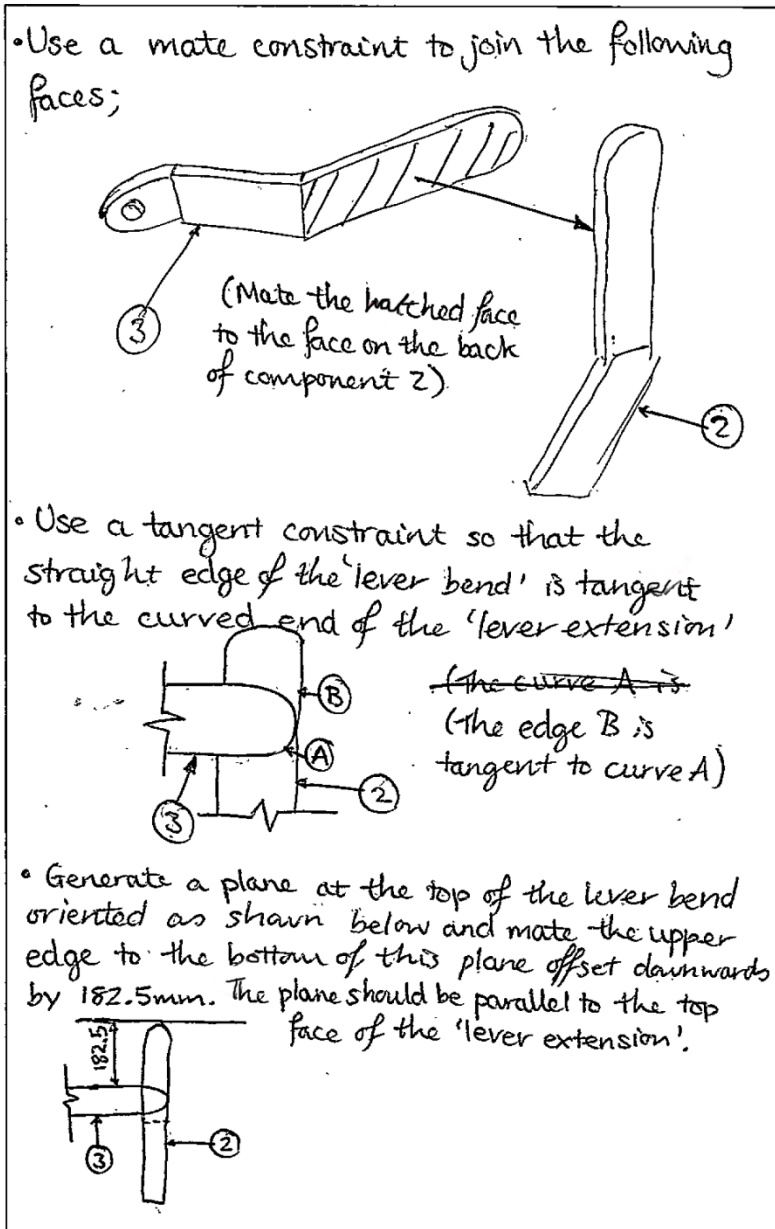 •Use a mate constraint to join the following
faces;
3
(Mate the hatched face
to the face on the back
of component 2)
2
• Use a tangent constraint so that the
straight edge of the 'lever bend' is tangent
to the curved end of the 'lever extension'
B
A
2
3
(The curve A is
(The edge B is
tangent to curve A)
• Generate a plane at the top of the lever bend
oriented as shown below and mate the upper
edge to the bottom of this plane offset downwards
by 182.5mm. The plane should be parallel to the top
face of the 'lever extension'.
182.5
3
2